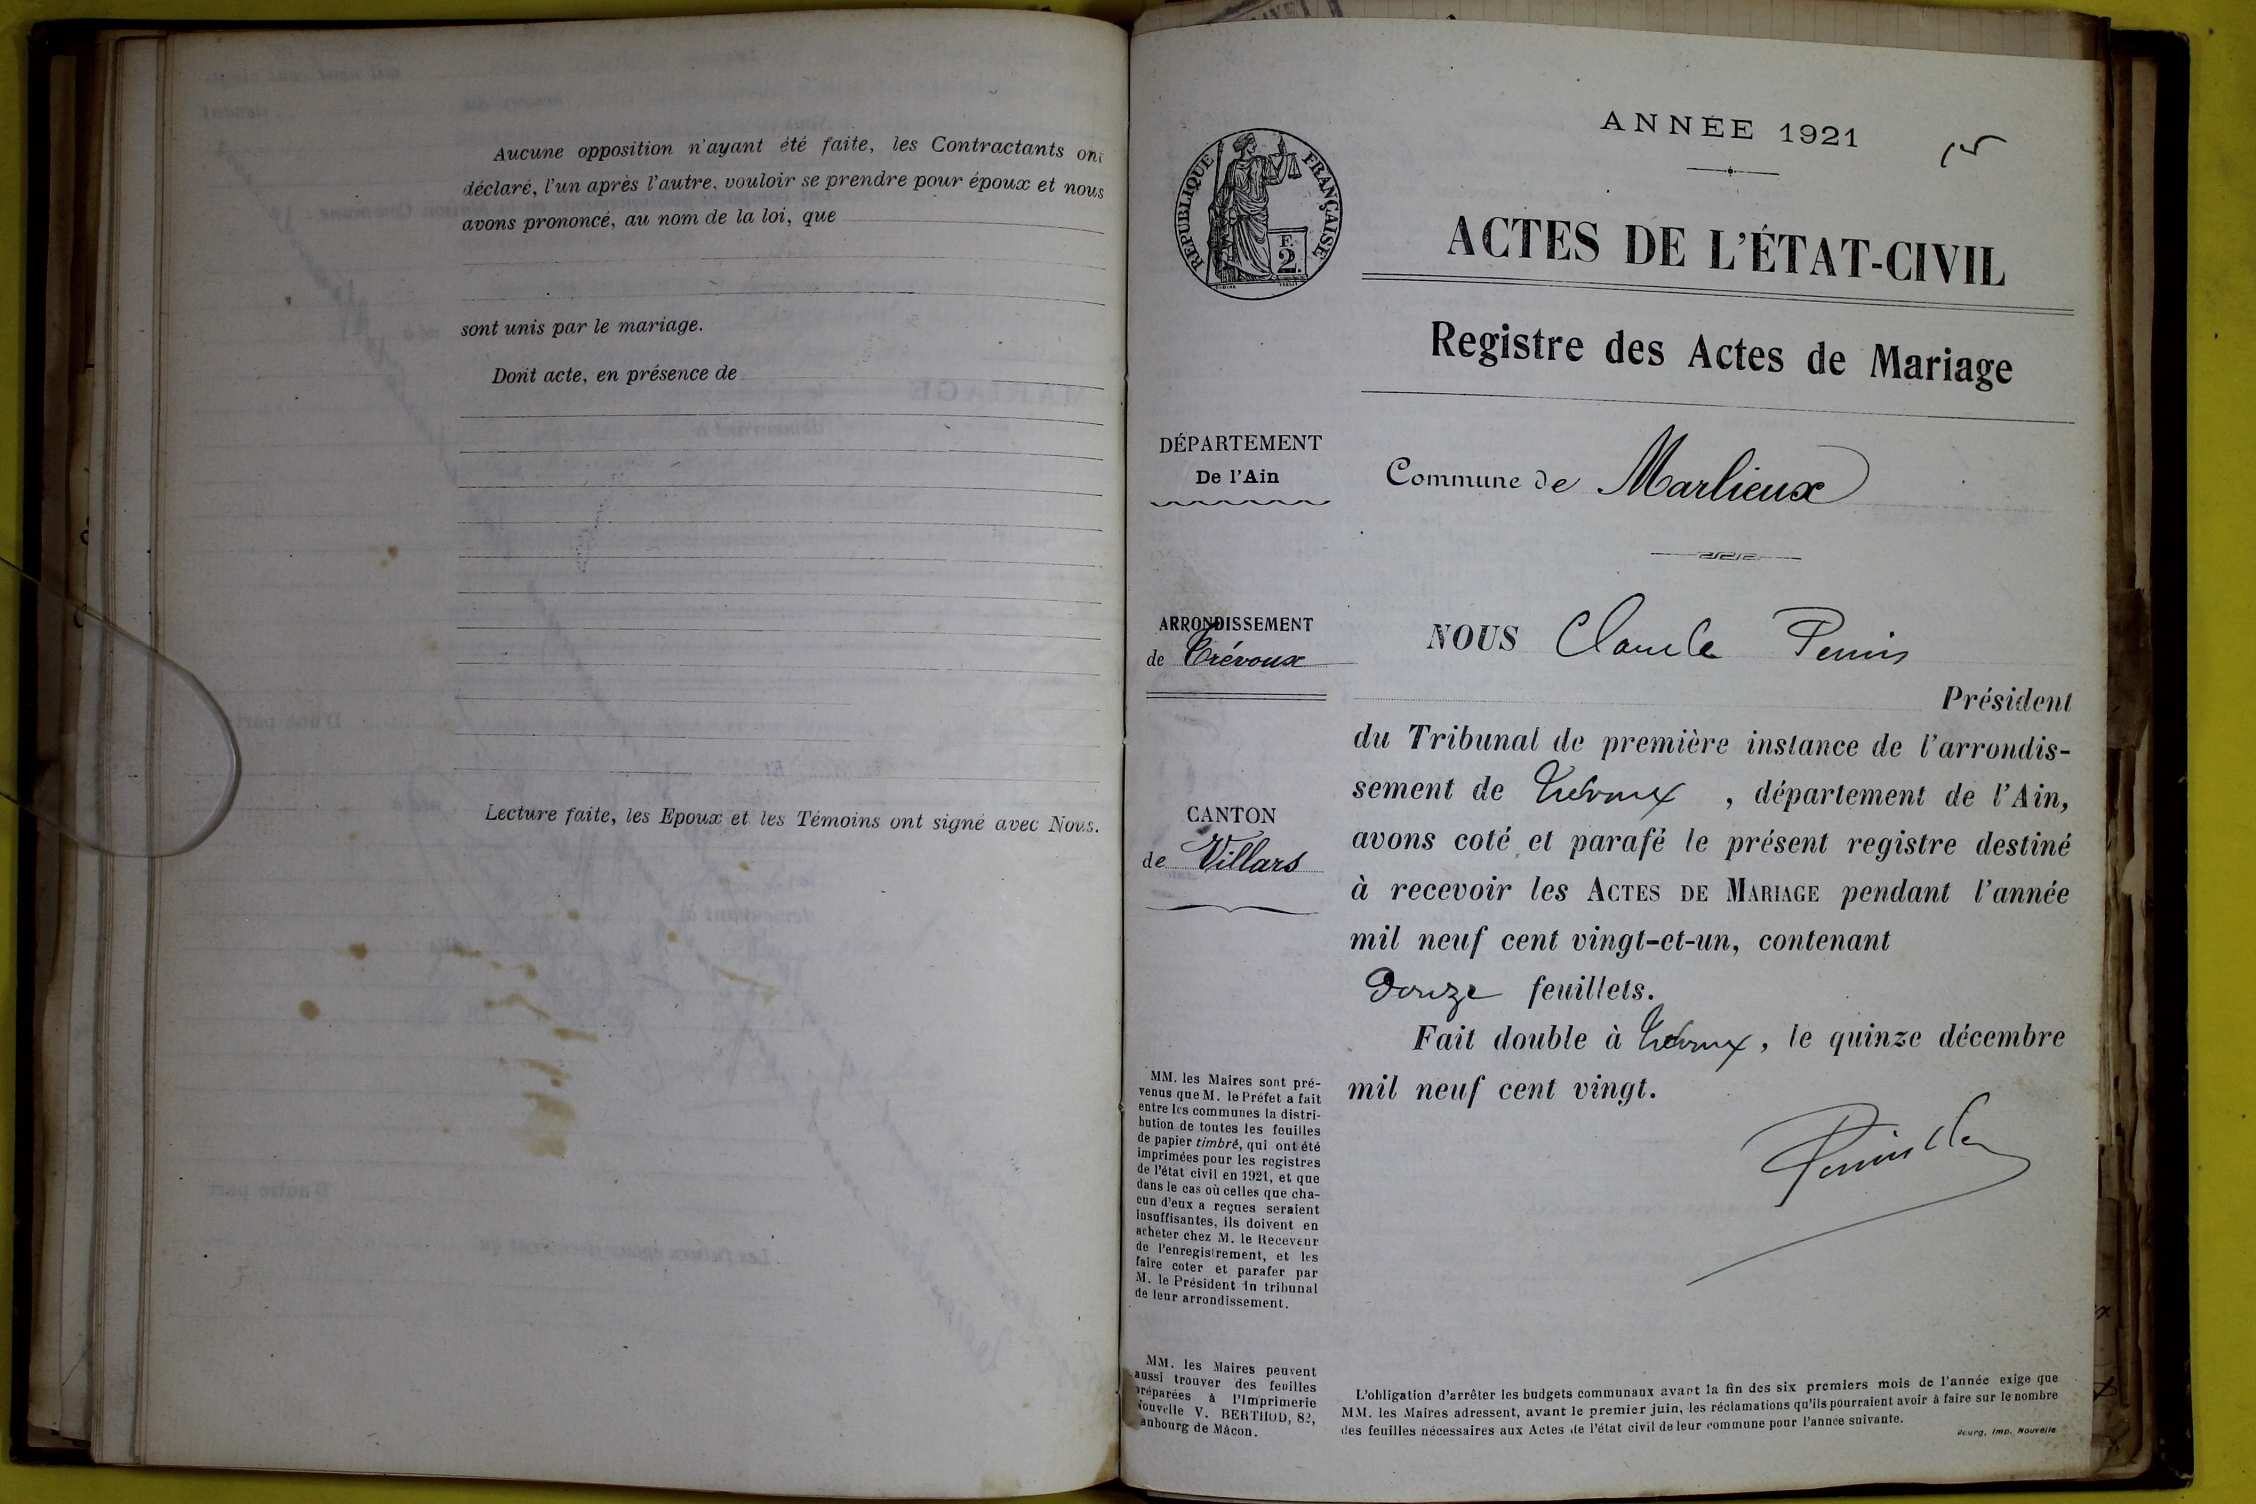 Aucune opposition n'ayant été faite, les Contractants ont
déclaré, l'un après l'autre, vouloir se prendre pour époux et nous
avons prononcé, au nom de la loi, que
sont unis par le mariage.
Dont acte, en présence de
Lecture faite, les Epoux et les Témoins ont signé avec Nous.
ANNÉE 1921
RÉPUBLIQUE FRANÇAISE
F.
2.
ACTES DE L'ÉTAT-CIVIL
Registre des Actes de Mariage
DÉPARTEMENT
De l'Ain
Commune de Marlieux
ARRONDISSEMENT
de Trévoux
CANTON
de Villars
NOUS Claude
Président
du Tribunal de première instance de l'arrondis-
sement de Trévoux, département de l'Ain,
avons coté et parafé le présent registre destiné
à recevoir les ACTES DE MARIAGE pendant l'année
mil neuf cent vingt-et-un, contenant
Douze feuillets.
Fait double à Trévoux, le quinze décembre
mil neuf cent vingt.
MM. les Maires sont pré-
venus que M. le Préfet a fait
entre les communes la distri-
bution de toutes les feuilles
de papier timbré, qui ont été
imprimées pour les registres
de l'état civil en 1921, et que
dans le cas où celles que cha-
cun d'eux a reçues seraient
insuffisantes, ils doivent en
acheter chez M. le Receveur
de l'enregistrement, et les
faire coter et parafer par
M. le Président du tribunal
de leur arrondissement.
MM. les Maires peuvent
aussi trouver des feuilles
préparées à l'Imprimerie
Nouvelle V. BERTHOD, 82,
faubourg de Mâcon.
L'obligation d'arrêter les budgets communaux avant la fin des six premiers mois de l'année exige que
MM. les Maires adressent, avant le premier juin, les réclamations qu'ils pourraient avoir à faire sur le nombre
des feuilles nécessaires aux Actes de l'état civil de leur commune pour l'année suivante.
Bourg, Imp. Nouvelle